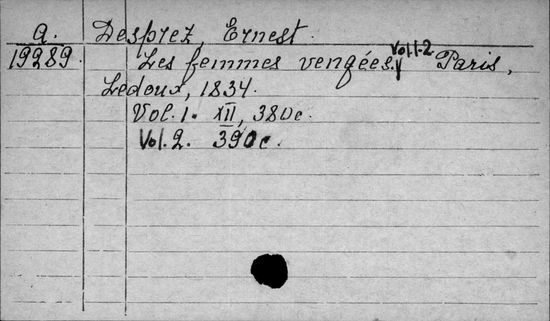 a. Desprez, Ernest.
19289. Les femmes vengées. Vol.1-2. Paris,
Ledoux, 1834.
Vol. 1. XII, 380c.
Vol. 2. 390c.